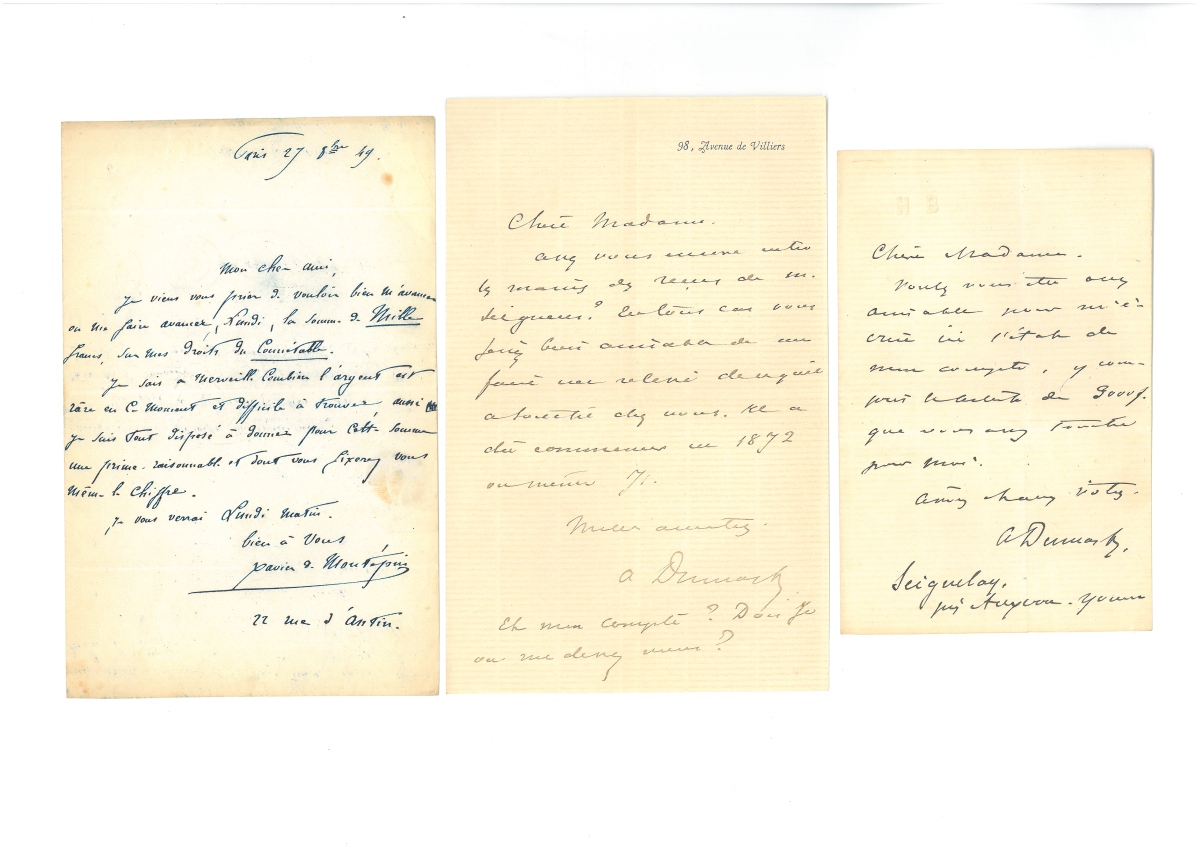 Paris 27 8bre 49.
Mon cher ami,
Je viens vous prier de vouloir bien m'avancer
ou me faire avancer, Lundi, la somme de Mille
francs, sur mes droits du Connétable.
Je sais à merveille combien l'argent est
rare en ce moment et difficile à trouver aussi
je suis tout disposé à donner pour cette somme
une prime raisonnable et dont vous fixerez vous
même le chiffre.
Je vous verrai Lundi matin.
bien à vous
Xavier de Montépin
22 rue d'Antin.
98, Avenue de Villiers
Chère Madame.
avez vous encore entre
les mains des reçus de M.
? En tous cas vous
bien aimable de me
faire un relevé de ce qu'il
a touché chez vous. Il a
dû commencer en 1872
ou même 71.
Mille amitiés.
A Dumas f
Et mon compte? Dois je
ou me devez vous?
Chère Madame.
Voulez vous être assez
aimable pour m'é-
crire ici l'état de
mon compte, y com-
pris de 3000 f.
que vous avez touché
pour moi.
Votre
A Dumas f.
Seignelay,
près Auxerre. Yonne